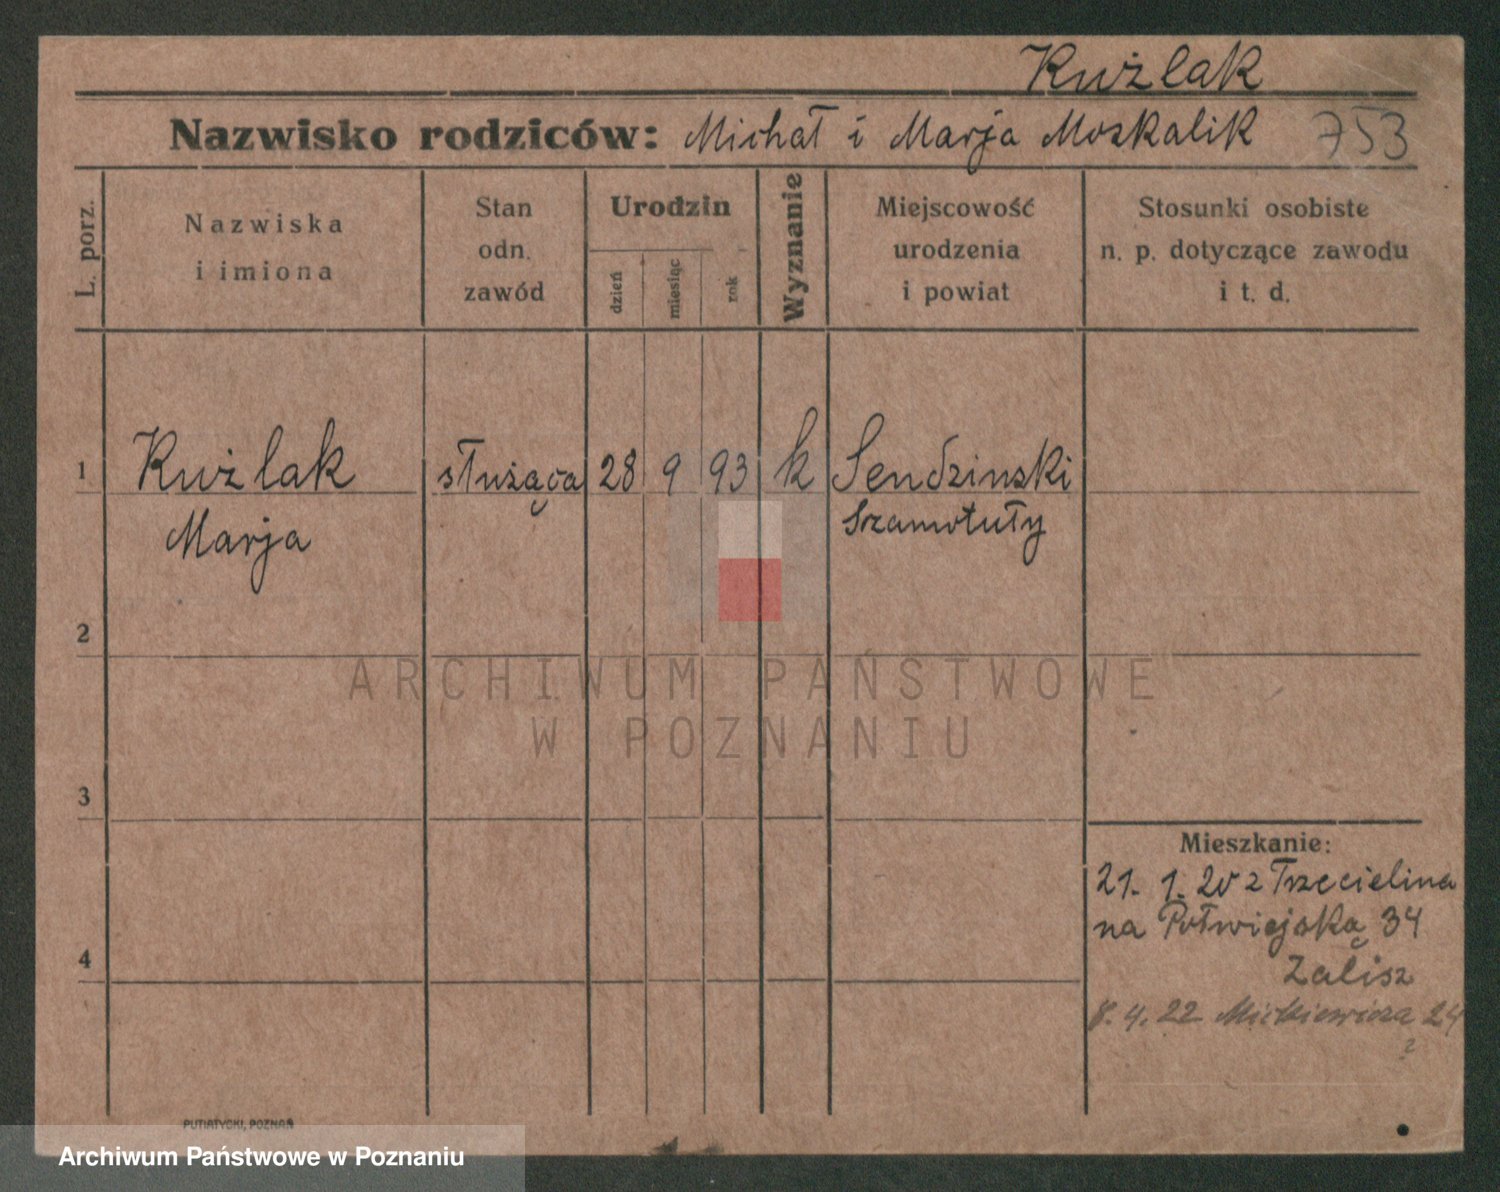 Kużlak
Nazwisko rodziców: Michał i Marja Moskalik 753
L. porz.
Nazwiska
i imiona
Stan
odn.
zawód
Urodzin
dzień
miesiąc
rok
Wyznanie
Miejscowość
urodzenia
i powiat
Stosunki osobiste
n. p. dotyczące zawodu
i t. d.
1 Kużlak służąca 28 9 93 k Sendzinski
Marja Szamotuły
2
ARCHIWUM PAŃSTWOWE
W POZNANIU
3
Mieszkanie:
21. 1. 20 z Trzecielina
na Półwiejską 34
Zalisz
4
8. 4. 22 Mickiewicza 24
2
PUTIATYCKI, POZNAŃ
Archiwum Państwowe w Poznaniu